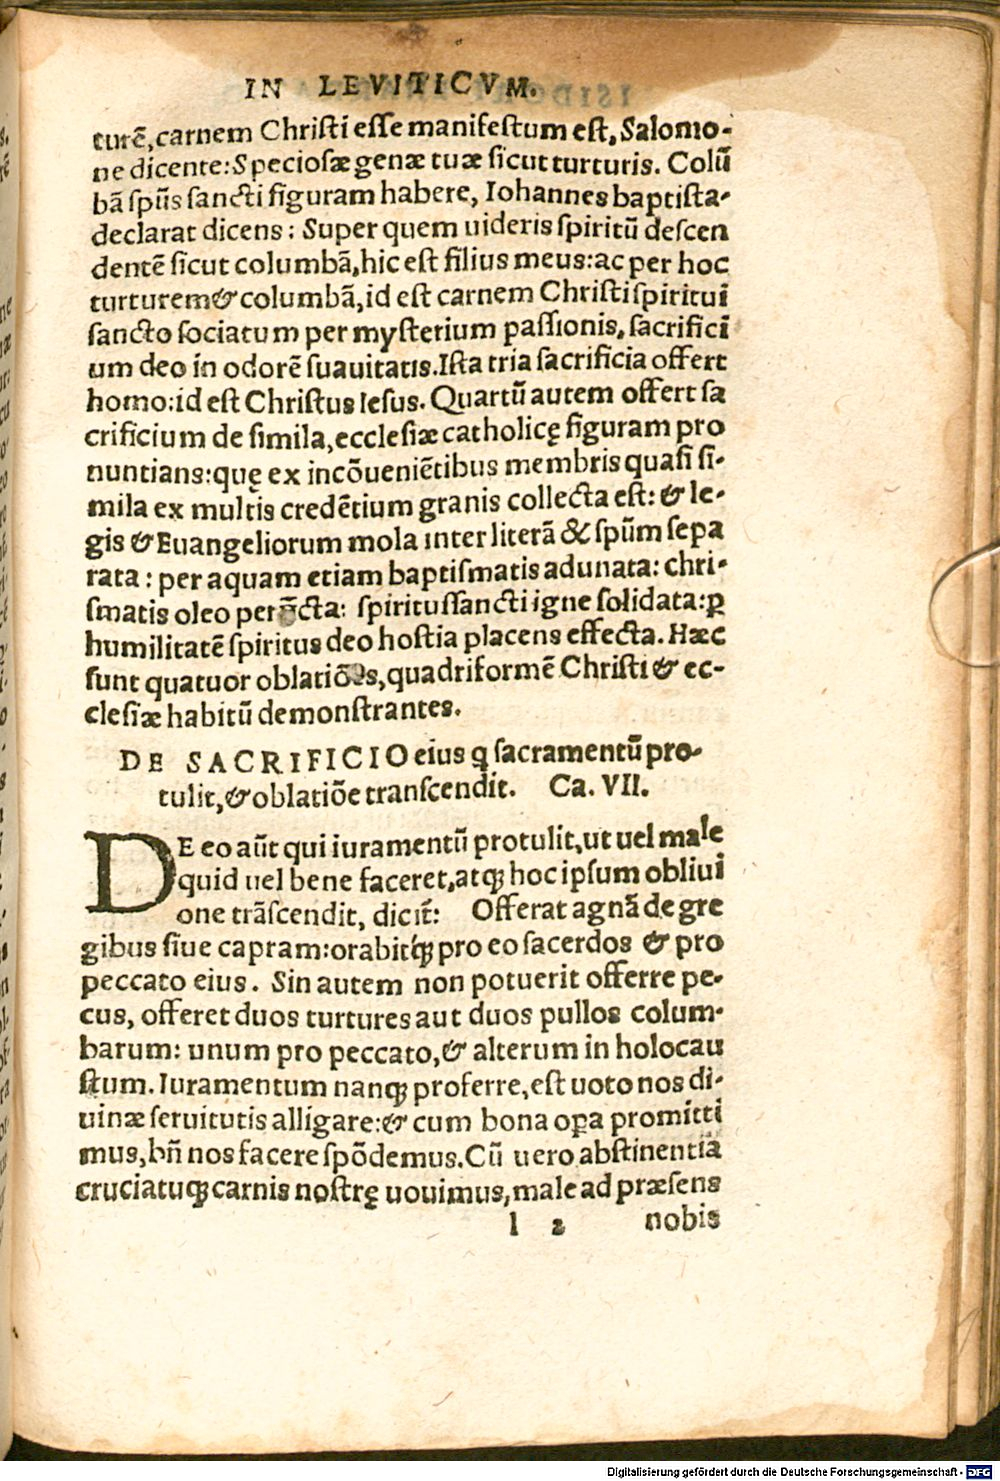 IN LEVITICVM.
turē, carnem Christi esse manifestum est, Salomo-
ne dicente: Speciosæ genæ tuæ sicut turturis. Colū
bā spūs sancti figuram habere, Iohannes baptista
declarat dicens: Super quem uideris spiritū descen
dentē sicut columbā, hic est filius meus: ac per hoc
turturem & columbā, id est carnem Christi spiritui
sancto sociatum per mysterium passionis, sacrifici
um deo in odorē suauitatis. Ista tria sacrificia offert
homo: id est Christus Iesus. Quartū autem offert sa
crificium de simila, ecclesiæ catholicę figuram pro
nuntians: quę ex incōueniētibus membris quasi si-
mila ex multis credētium granis collecta est: & le-
gis & Euangeliorum mola inter literā & spūm sepa
rata: per aquam etiam baptismatis adunata: chri-
smatis oleo perūcta: spiritussancti igne solidata: ꝑ
humilitatē spiritus deo hostia placens effecta. Hæc
sunt quatuor oblatiōes, quadriformē Christi & ec-
clesiæ habitū demonstrantes.
DE SACRIFICIO eius q̄ sacramentū pro-
tulit, & oblatiōe transcendit. Ca. VII.
DE eo aūt qui iuramentū protulit, ut uel male
quid uel bene faceret, atq; hoc ipsum obliui
one trāscendit, dicit̄: Offerat agnā de gre
gibus siue capram: orabitq́; pro eo sacerdos & pro
peccato eius. Sin autem non potuerit offerre pe-
cus, offeret duos turtures aut duos pullos colum-
barum: unum pro peccato, & alterum in holocau
stum. Iuramentum nanq; proferre, est uoto nos di-
uinæ seruitutis alligare: & cum bona oꝑa promitti
mus, bn̄ nos facere spōdemus. Cū uero abstinentiā
cruciatuq; carnis nostrę uouimus, male ad præsens
l 2 nobis
Digitalisierung gefördert durch die Deutsche Forschungsgemeinschaft - DFG